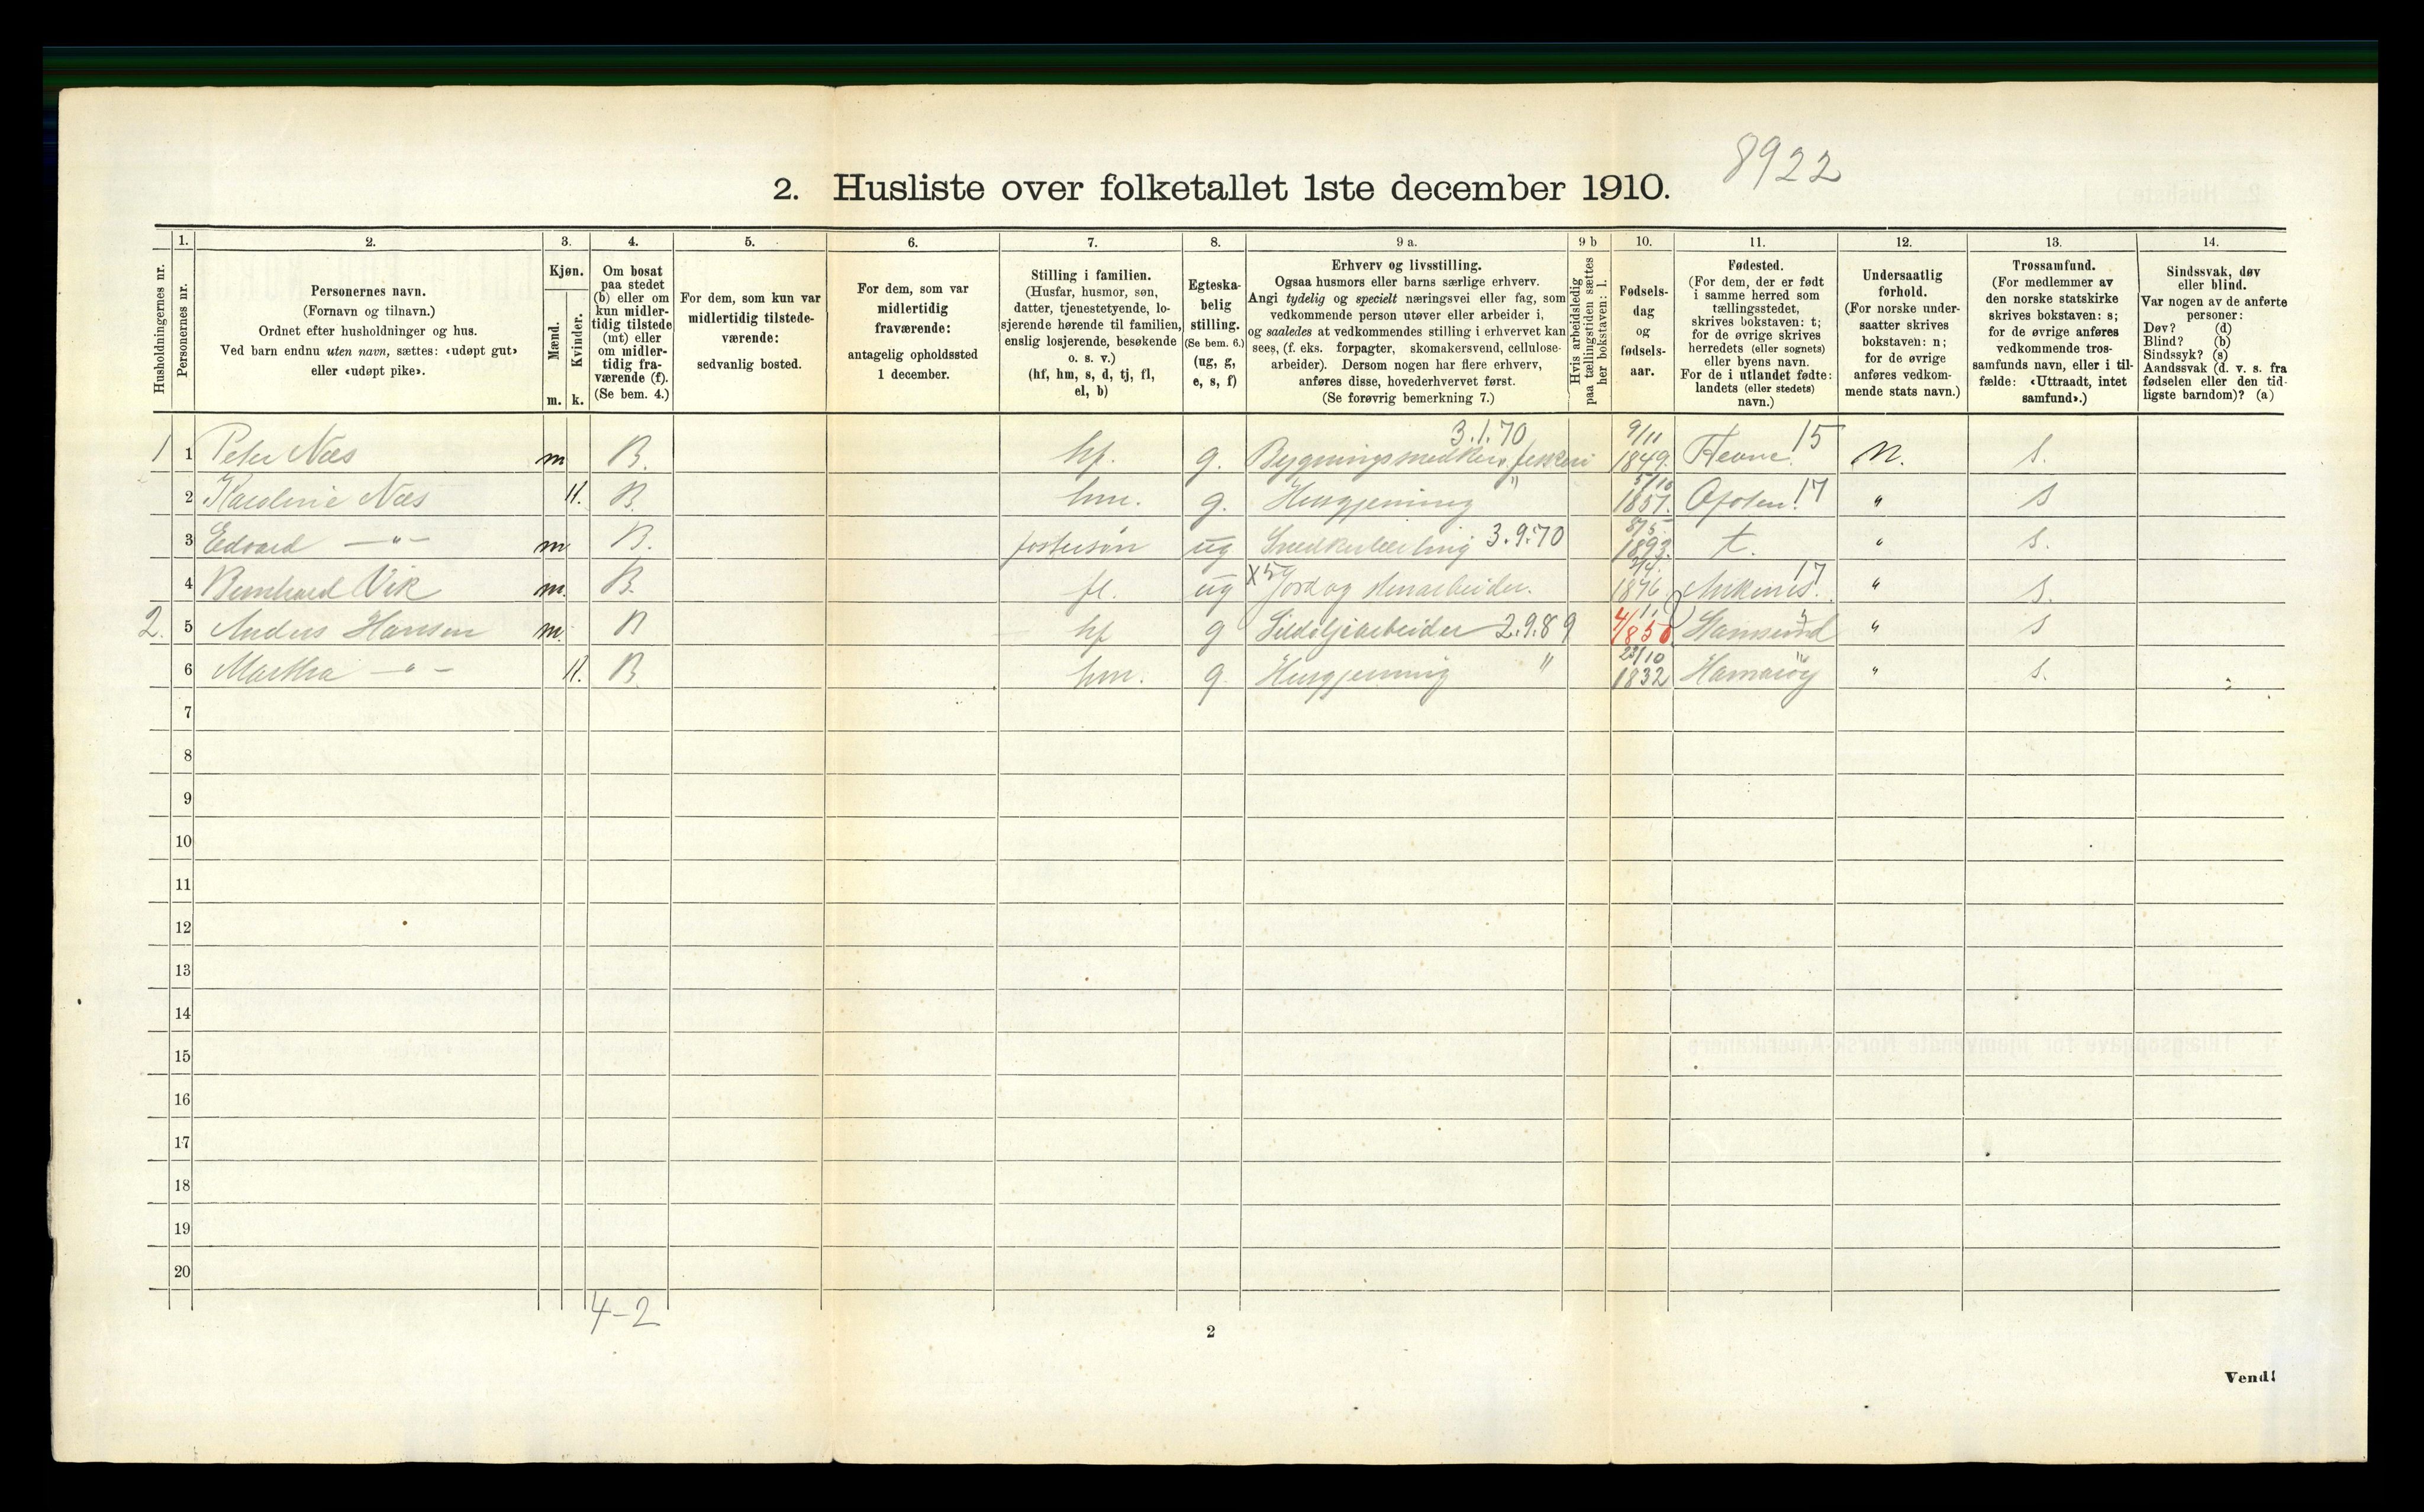 8922
2. Husliste over folketallet 1ste december 1910.
Husholdningernes nr.
1.
Personernes nr.
2.
Personernes navn.
(Fornavn og tilnavn.)
Ordnet efter husholdninger og hus.
Ved barn endnu uten navn, sættes: «udøpt gut»
eller «udøpt pike».
3.
Kjøn.
Mænd.
Kvinder.
m. k.
4.
Om bosat
paa stedet
(b) eller om
kun midler-
tidig tilstede
(mt) eller
om midler-
tidig fra-
værende (f).
(Se bem. 4.)
5.
For dem, som kun var
midlertidig tilstede-
værende:
sedvanlig bosted.
6.
For dem, som var
midlertidig
fraværende:
antagelig opholdssted
1 december.
7.
Stilling i familien.
(Husfar, husmor, søn,
datter, tjenestetyende, lo-
sjerende hørende til familien,
enslig losjerende, besøkende
o. s. v.)
(hf, hm, s, d, tj, fl,
el, b)
8.
Egteska-
belig
stilling.
(Se bem. 6.)
(ug, g,
e, s, f)
9 a.
Erhverv og livsstilling.
Ogsaa husmors eller barns særlige erhverv.
Angi tydelig og specielt næringsvei eller fag, som
vedkommende person utøver eller arbeider i,
og saaledes at vedkommendes stilling i erhvervet kan
sees, (f. eks. forpagter, skomakersvend, cellulose-
arbeider). Dersom nogen har flere erhverv,
anføres disse, hovederhvervet først.
(Se forøvrig bemerkning 7.)
9 b
Hvis arbeidsledig
paa tællingstiden sættes
her bokstaven: l.
10.
Fødsels-
dag
og
fødsels-
aar.
11.
Fødested.
(For dem, der er født
i samme herred som
tællingsstedet,
skrives bokstaven: t;
for de øvrige skrives
herredets (eller sognets)
eller byens navn.
For de i utlandet fødte:
landets (eller stedets)
navn.)
12.
Undersaatlig
forhold.
(For norske under-
saatter skrives
bokstaven: n;
for de øvrige
anføres vedkom-
mende stats navn.)
13.
Trossamfund.
(For medlemmer av
den norske statskirke
skrives bokstaven: s;
for de øvrige anføres
vedkommende tros-
samfunds navn, eller i til-
fælde: «Uttraadt, intet
samfund».)
14.
Sindssvak, døv
eller blind.
Var nogen av de anførte
personer:
Døv? (d)
Blind? (b)
Sindssyk? (s)
Aandssvak (d. v. s. fra
fødselen eller den tid-
ligste barndom)? (a)
1 1 Peter Næs m B. hf. g. 3.1.70 9/11 1849. Hevne 15 n. s.
2 Karoline Næs k. B. hm. g. Husgjerning " 5/10 1851. Ofoten 17 " s
3 Edvard —"— m B. fostersøn ug 3.9.70 1893. t. " s.
4 Bernhard Vik m. B. fl. ug X5 Jord og stenarbeider. 1876. Ankenes. 17 " s.
2. 5 Anders Hansen m. B hf g Sildoljearbeider 2.9.89 4/1 1850 " s
6 Martha —"— k. B hm. g Husgjerning " 23/10 1832 Hamarøy " s.
7
8
9
10
11
12
13
14
15
16
17
18
19
20
4-2
2
Vend!